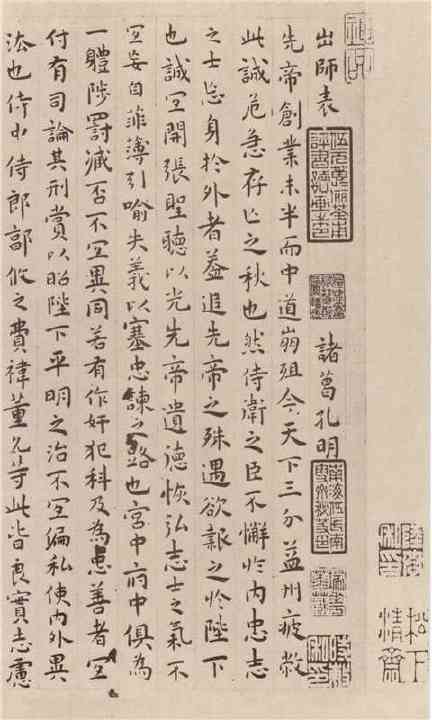 松下
清齋
出師表 諸葛孔明
先帝創業未半而中道崩殂今天下三分益州疲敝
此誠危急存亡之秋也然侍衛之臣不懈於内忠志
之士忘身於外者蓋追先帝之殊遇欲報之於陛下
也誠宜開張聖聽以光先帝遺德恢弘志士之氣不
宜妄自菲薄引喻失義以塞忠諫之路也宮中府中俱為
一體陟罰臧否不宜異同若有作奸犯科及為忠善者宜
付有司論其刑賞以昭陛下平明之治不宜偏私使内外異
法也侍中侍郎郭攸之費禕董允等此皆良實志慮